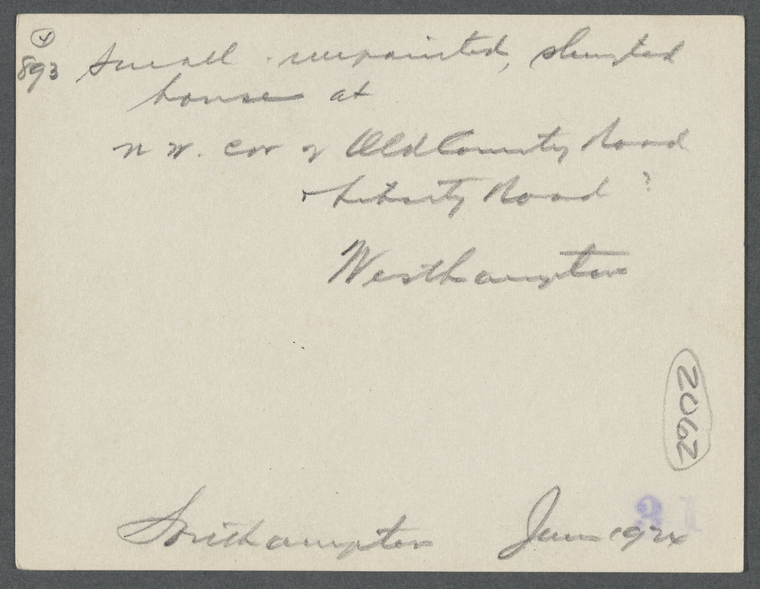 4
893 Small unpainted, shingled
house at
N W. cor of Old County Road
+ Liberty Road ?
Westhampton
2062
31
Southampton June 1924